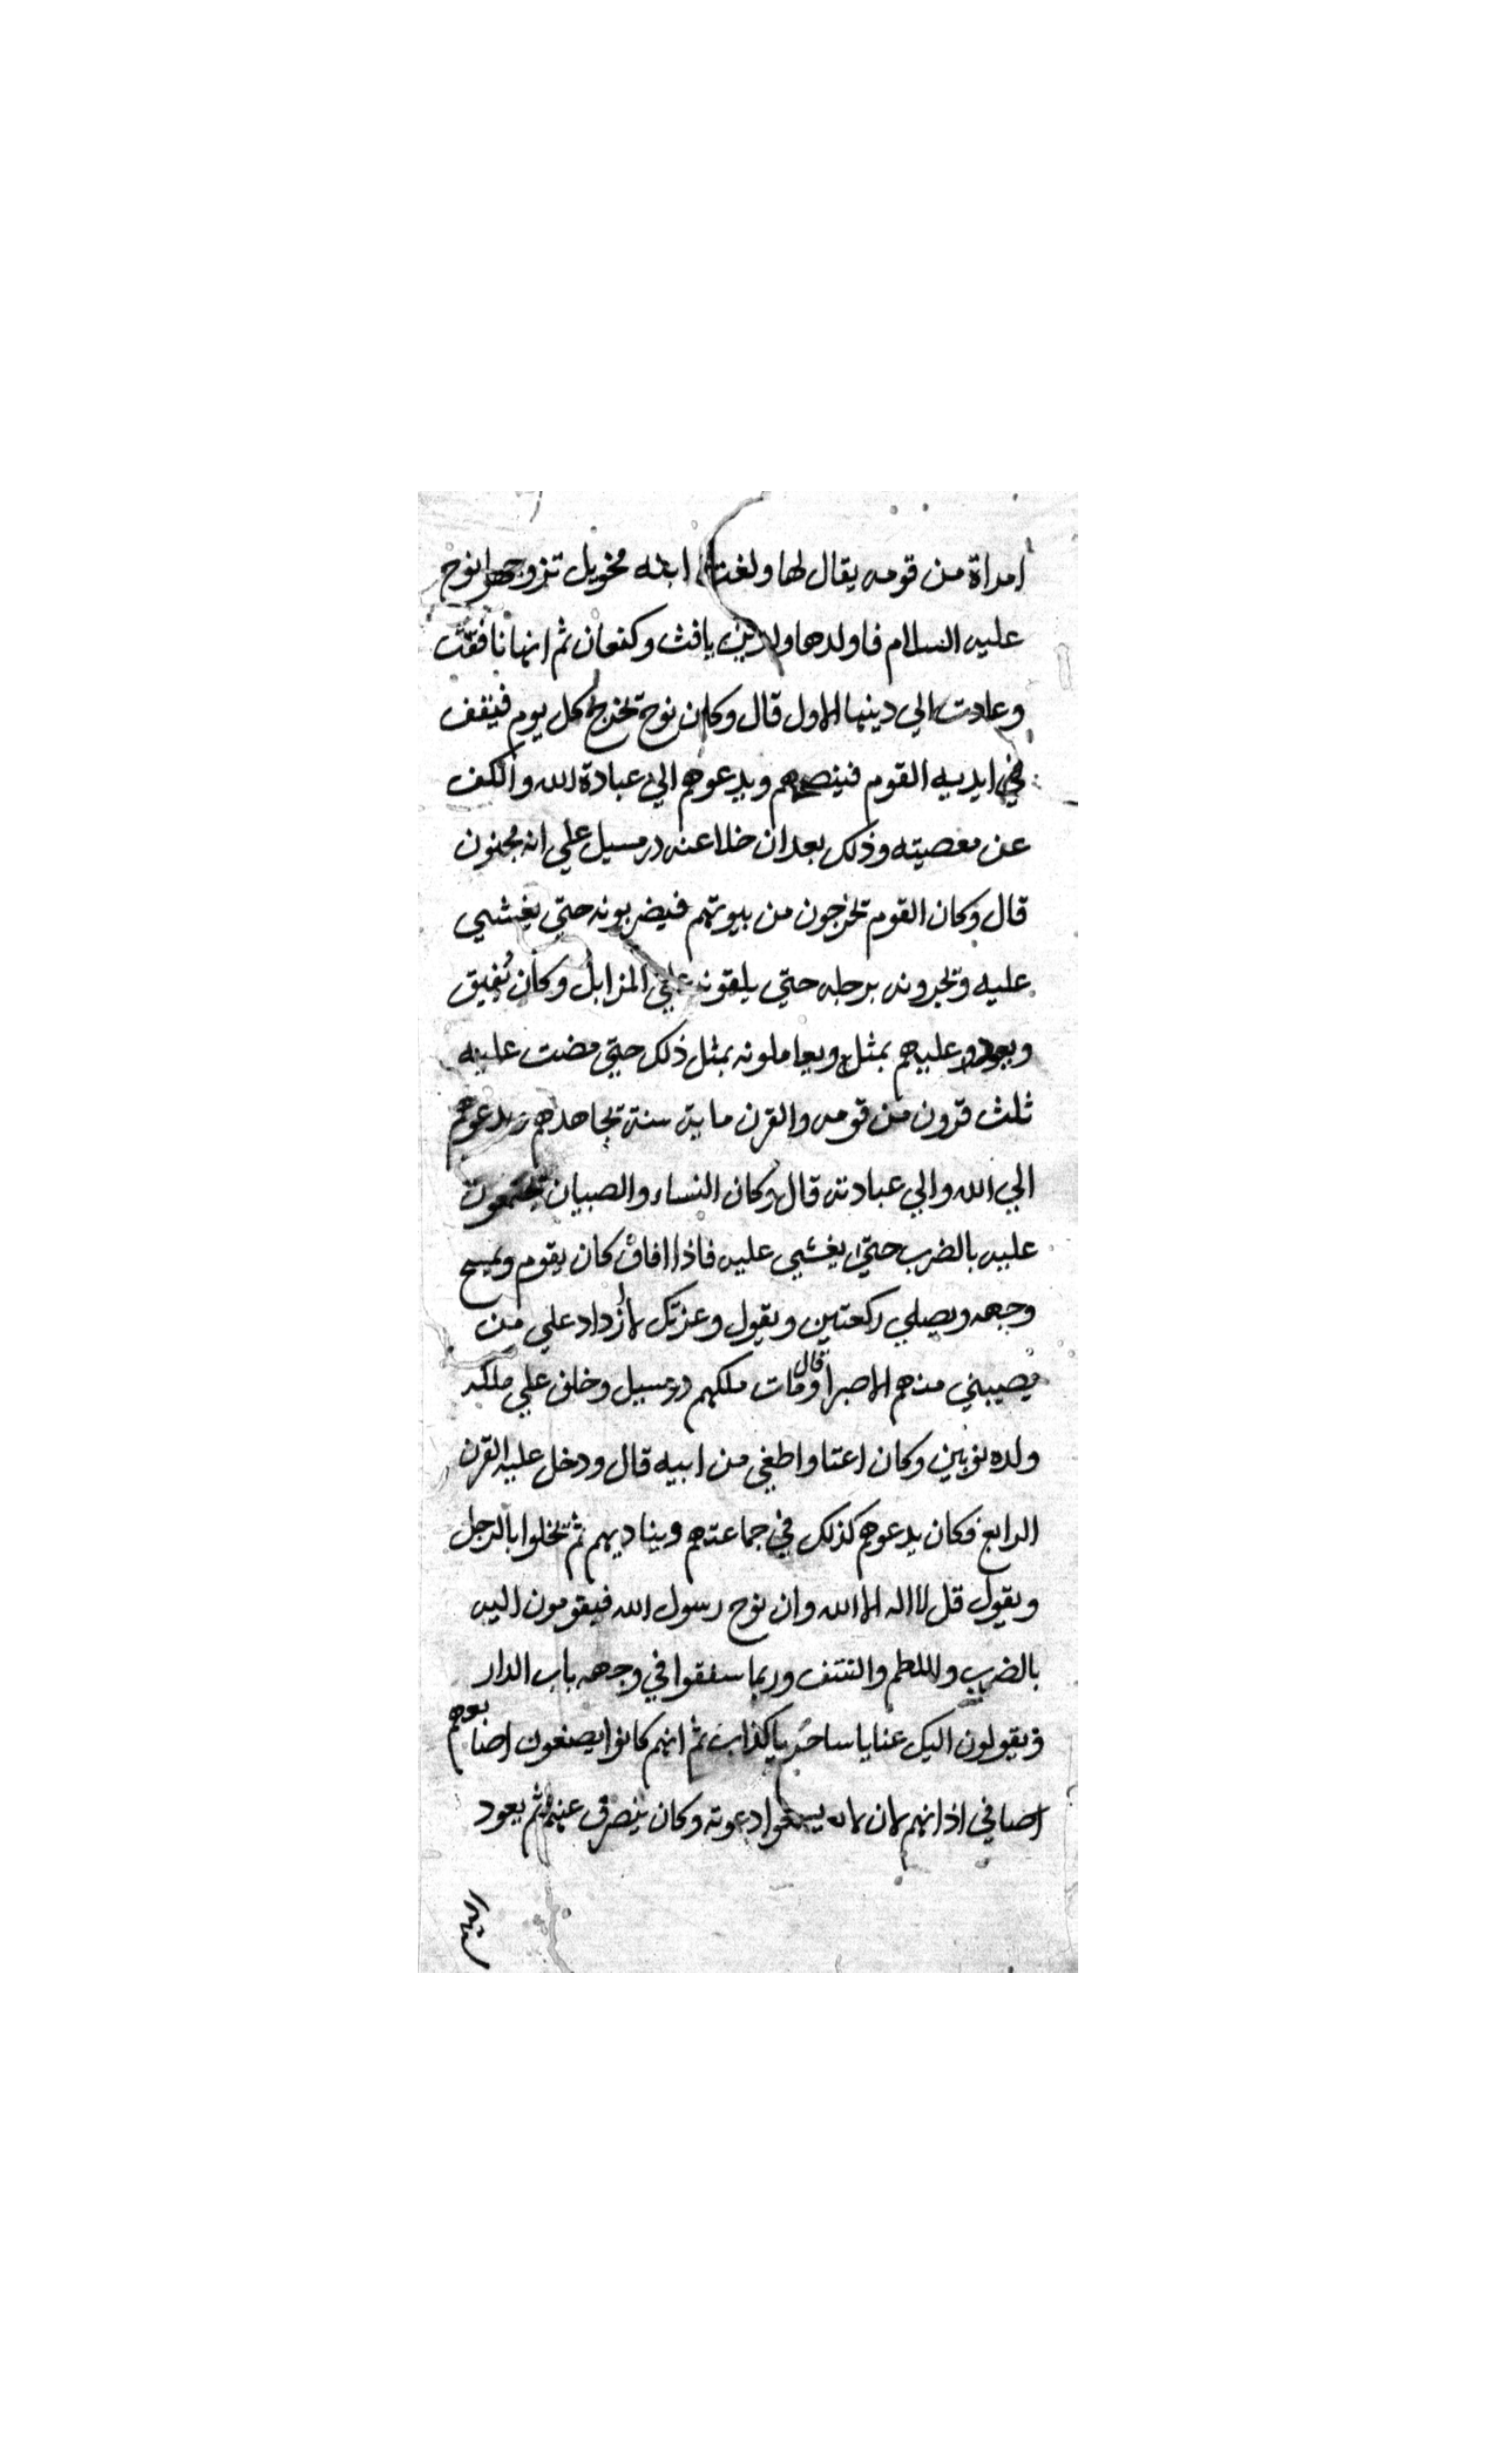 امراة من قومه يقال لها ولغتا ابنه مخويل تزوجها نوح
عليه السلام فاولدها ولدين يافث وكنعان ثم انها نافقت
وعادت الي دينها الاول قال وكان نوح تخرج كل يوم فيقف
في ايديه القوم فينصحهم ويدعوهم الي عبادة الله والكف
عن معصيته وذلك بعد ان خلا عنه درمسيل علي انه مجنون
قال وكان القوم تخرجون من بيوتهم فيضربونه حتي يغشي
عليه وتجرونه برجله حتي يلقونه علي المزابل وكان يفيق
ويعود عليهم بمثل ويعاملونه بمثل ذلك حتي مضت عليه
ثلث قرون من قومه والقرن ماية سنة تجاهدهم ويدعوهم
الي الله والي عبادته قال وكان النساء والصبيان تجتمعون
عليه بالضرب حتي يغشي عليه فاذا افاق كان يقوم ويمسح
وجهه ويصلي ركعتين ويقول وعزتك لا أزداد علي من
يصيبني منهم الا صبرا قال ومات ملكهم درمسيل وخلف علي ملكه
ولده نوبين وكان اعتا واطغي من ابيه قال ودخل عليه القرن
الرابع فكان يدعوهم كذلك في جماعتهم ويناديهم ثم تخلوا بالرجل
ويقول قل لا اله الا الله وان نوح رسول الله فيقومون اليه
بالضرب واللطم والنتف وربما سفقوا في وجهه باب الدار
ويقولون اليك عنا يا ساحر يا كذاب ثم انهم كانوا يصنعون اصابعهم
اصا في اذانهم لان لا يسمعوا دعوته وكان ينصرف عنهم ثم يعود